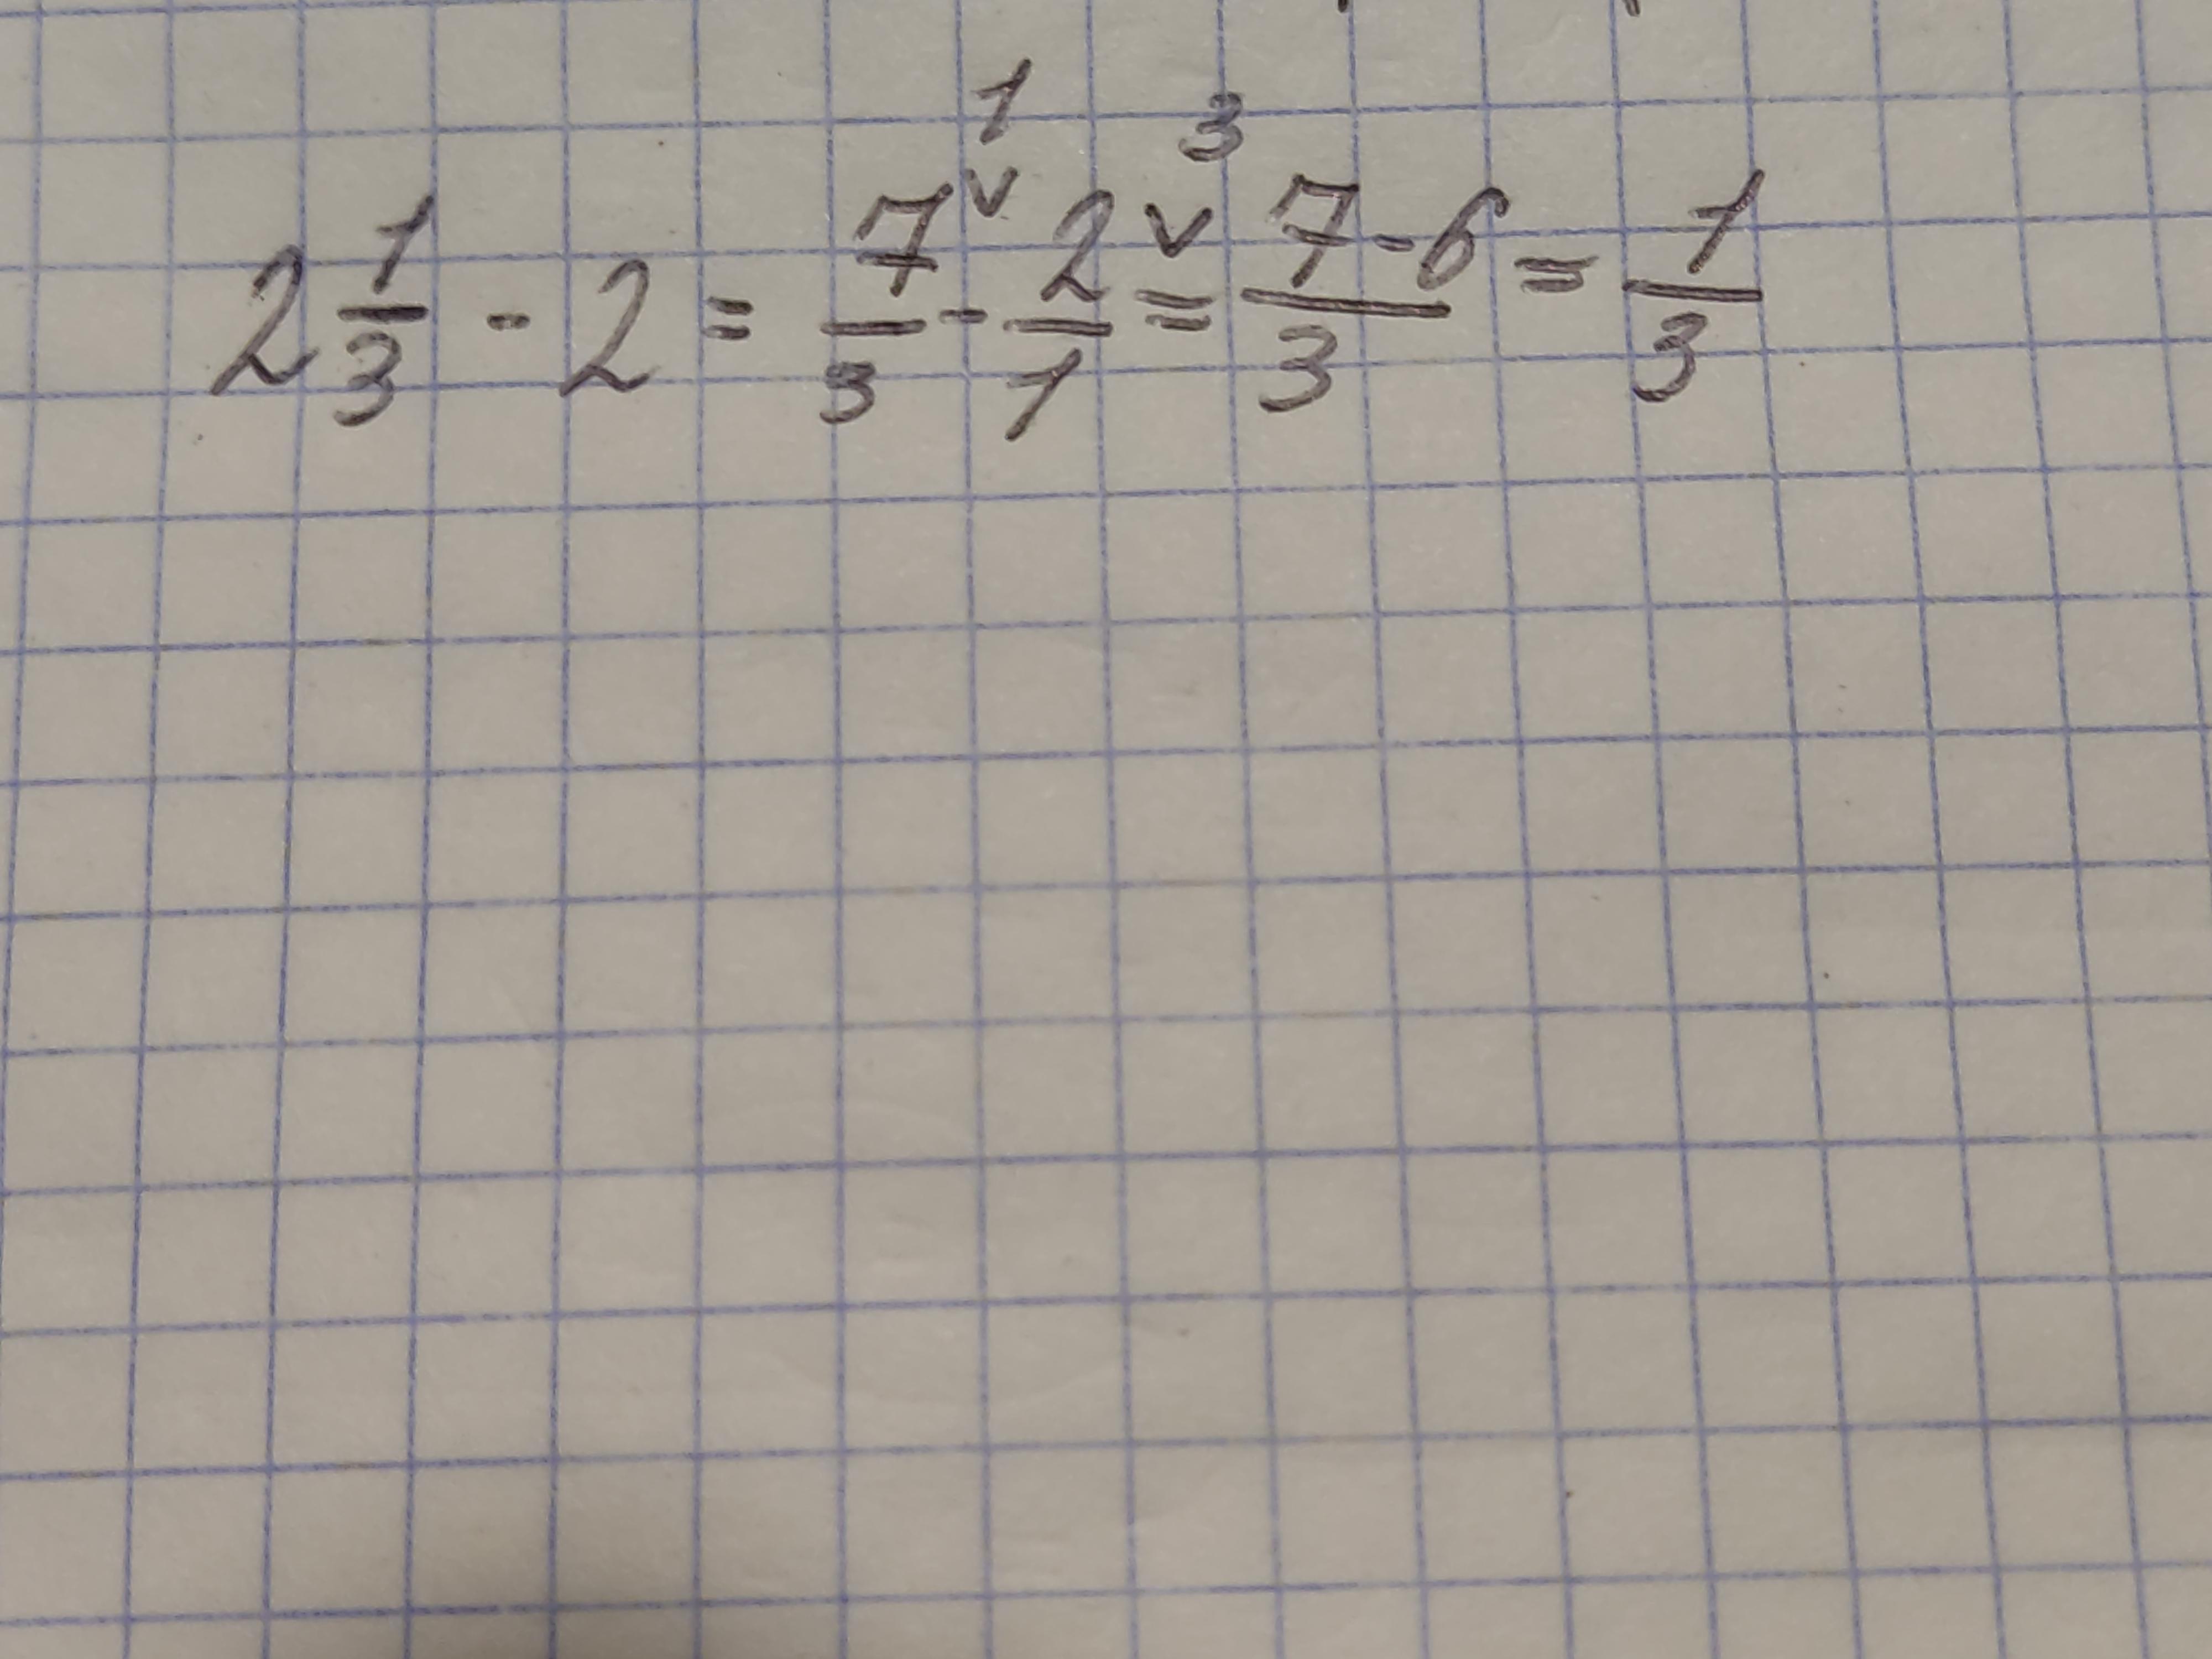 2 1/3 - 2 = 7/3 ^1 - 2/1 ^3 = 7-6/3 = 1/3